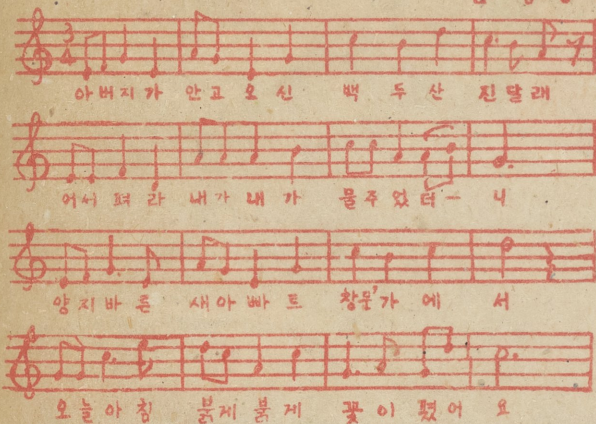 3/4
아버지가 안고 오신 백두산 진달래
어서 펴라 내가 내가 물주었더ー니
양지바른 새아빠트 창문가에서
오늘아침 붉게 붉게 꽃이 폈어요